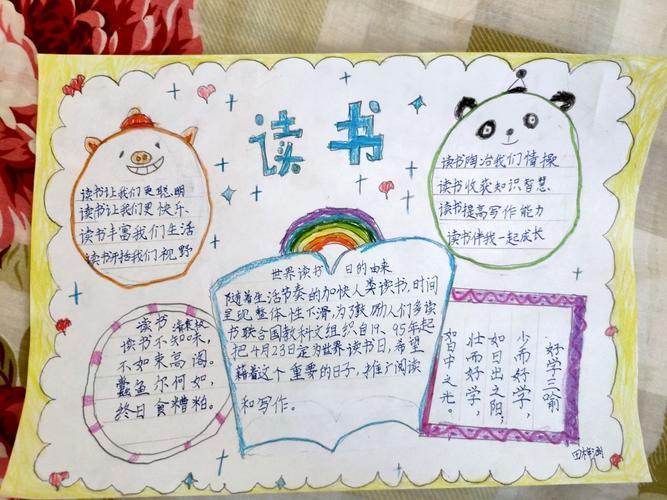 读书
读书让我们更聪明
读书让我们更快乐.
读书丰富我们生活
读书开括我们视野
读书陶冶我们情操
读书收获知识智慧
读书提高写作能力
读书伴我一起成长
世界读书 日的由来
随着生活节奏的加快人类读书,时间
呈现整体性下滑,为了鼓励人们多读
书联合国教科文组织自19、95年起
把4月23日定为世界读书日,希望
藉着这个重要的日子,推广阅读
和写作。
读书
读书不知味,
不如束高阁。
蠹鱼尔何如,
终日食糟粕。
好学三喻
少而好学,
如日出之阳;
壮而好学,
如日中之光。